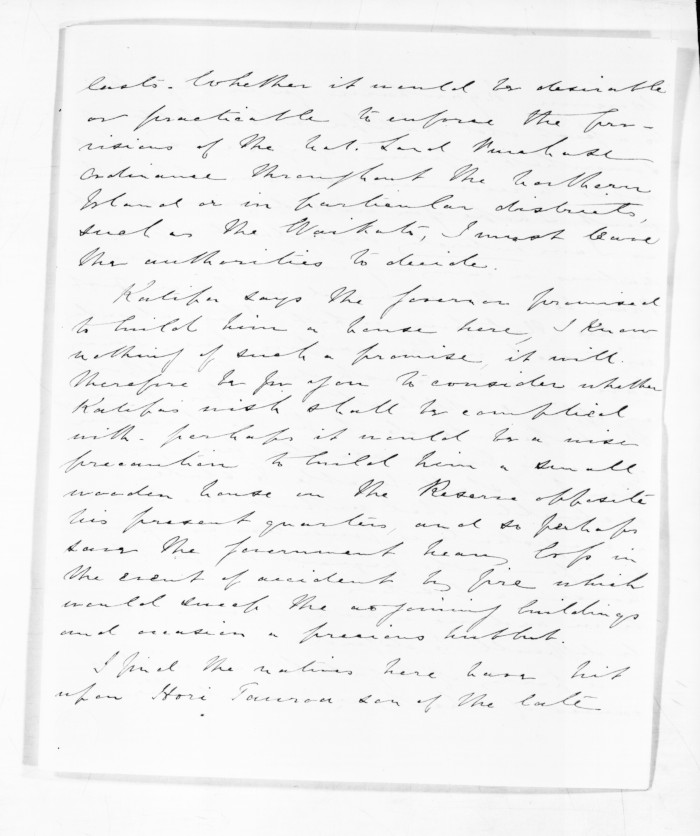 lasts. Whether it would be desirable
or practicable to enforce the pro-
visions of the Nat. Land Purchase
Ordinance throughout the Northern
Island or in particular districts,
such as the Waikato, I must leave
the authorities to decide.
Katipa says the Governor promised
to build him a house here, I know
nothing of such a promise, it will
therefore be for you to consider whether
Katipa's wish shall be complied
with. perhaps it would be a wise
precaution to build him a small
wooden house on the Reserve opposite
his present quarters, and so perhaps
save the Government heavy loss in
the event of accident by fire which
would sweep the adjoining buildings
and occasion a precious hubbub.
I find the natives here have hit
upon Hori Tauroa son of the late